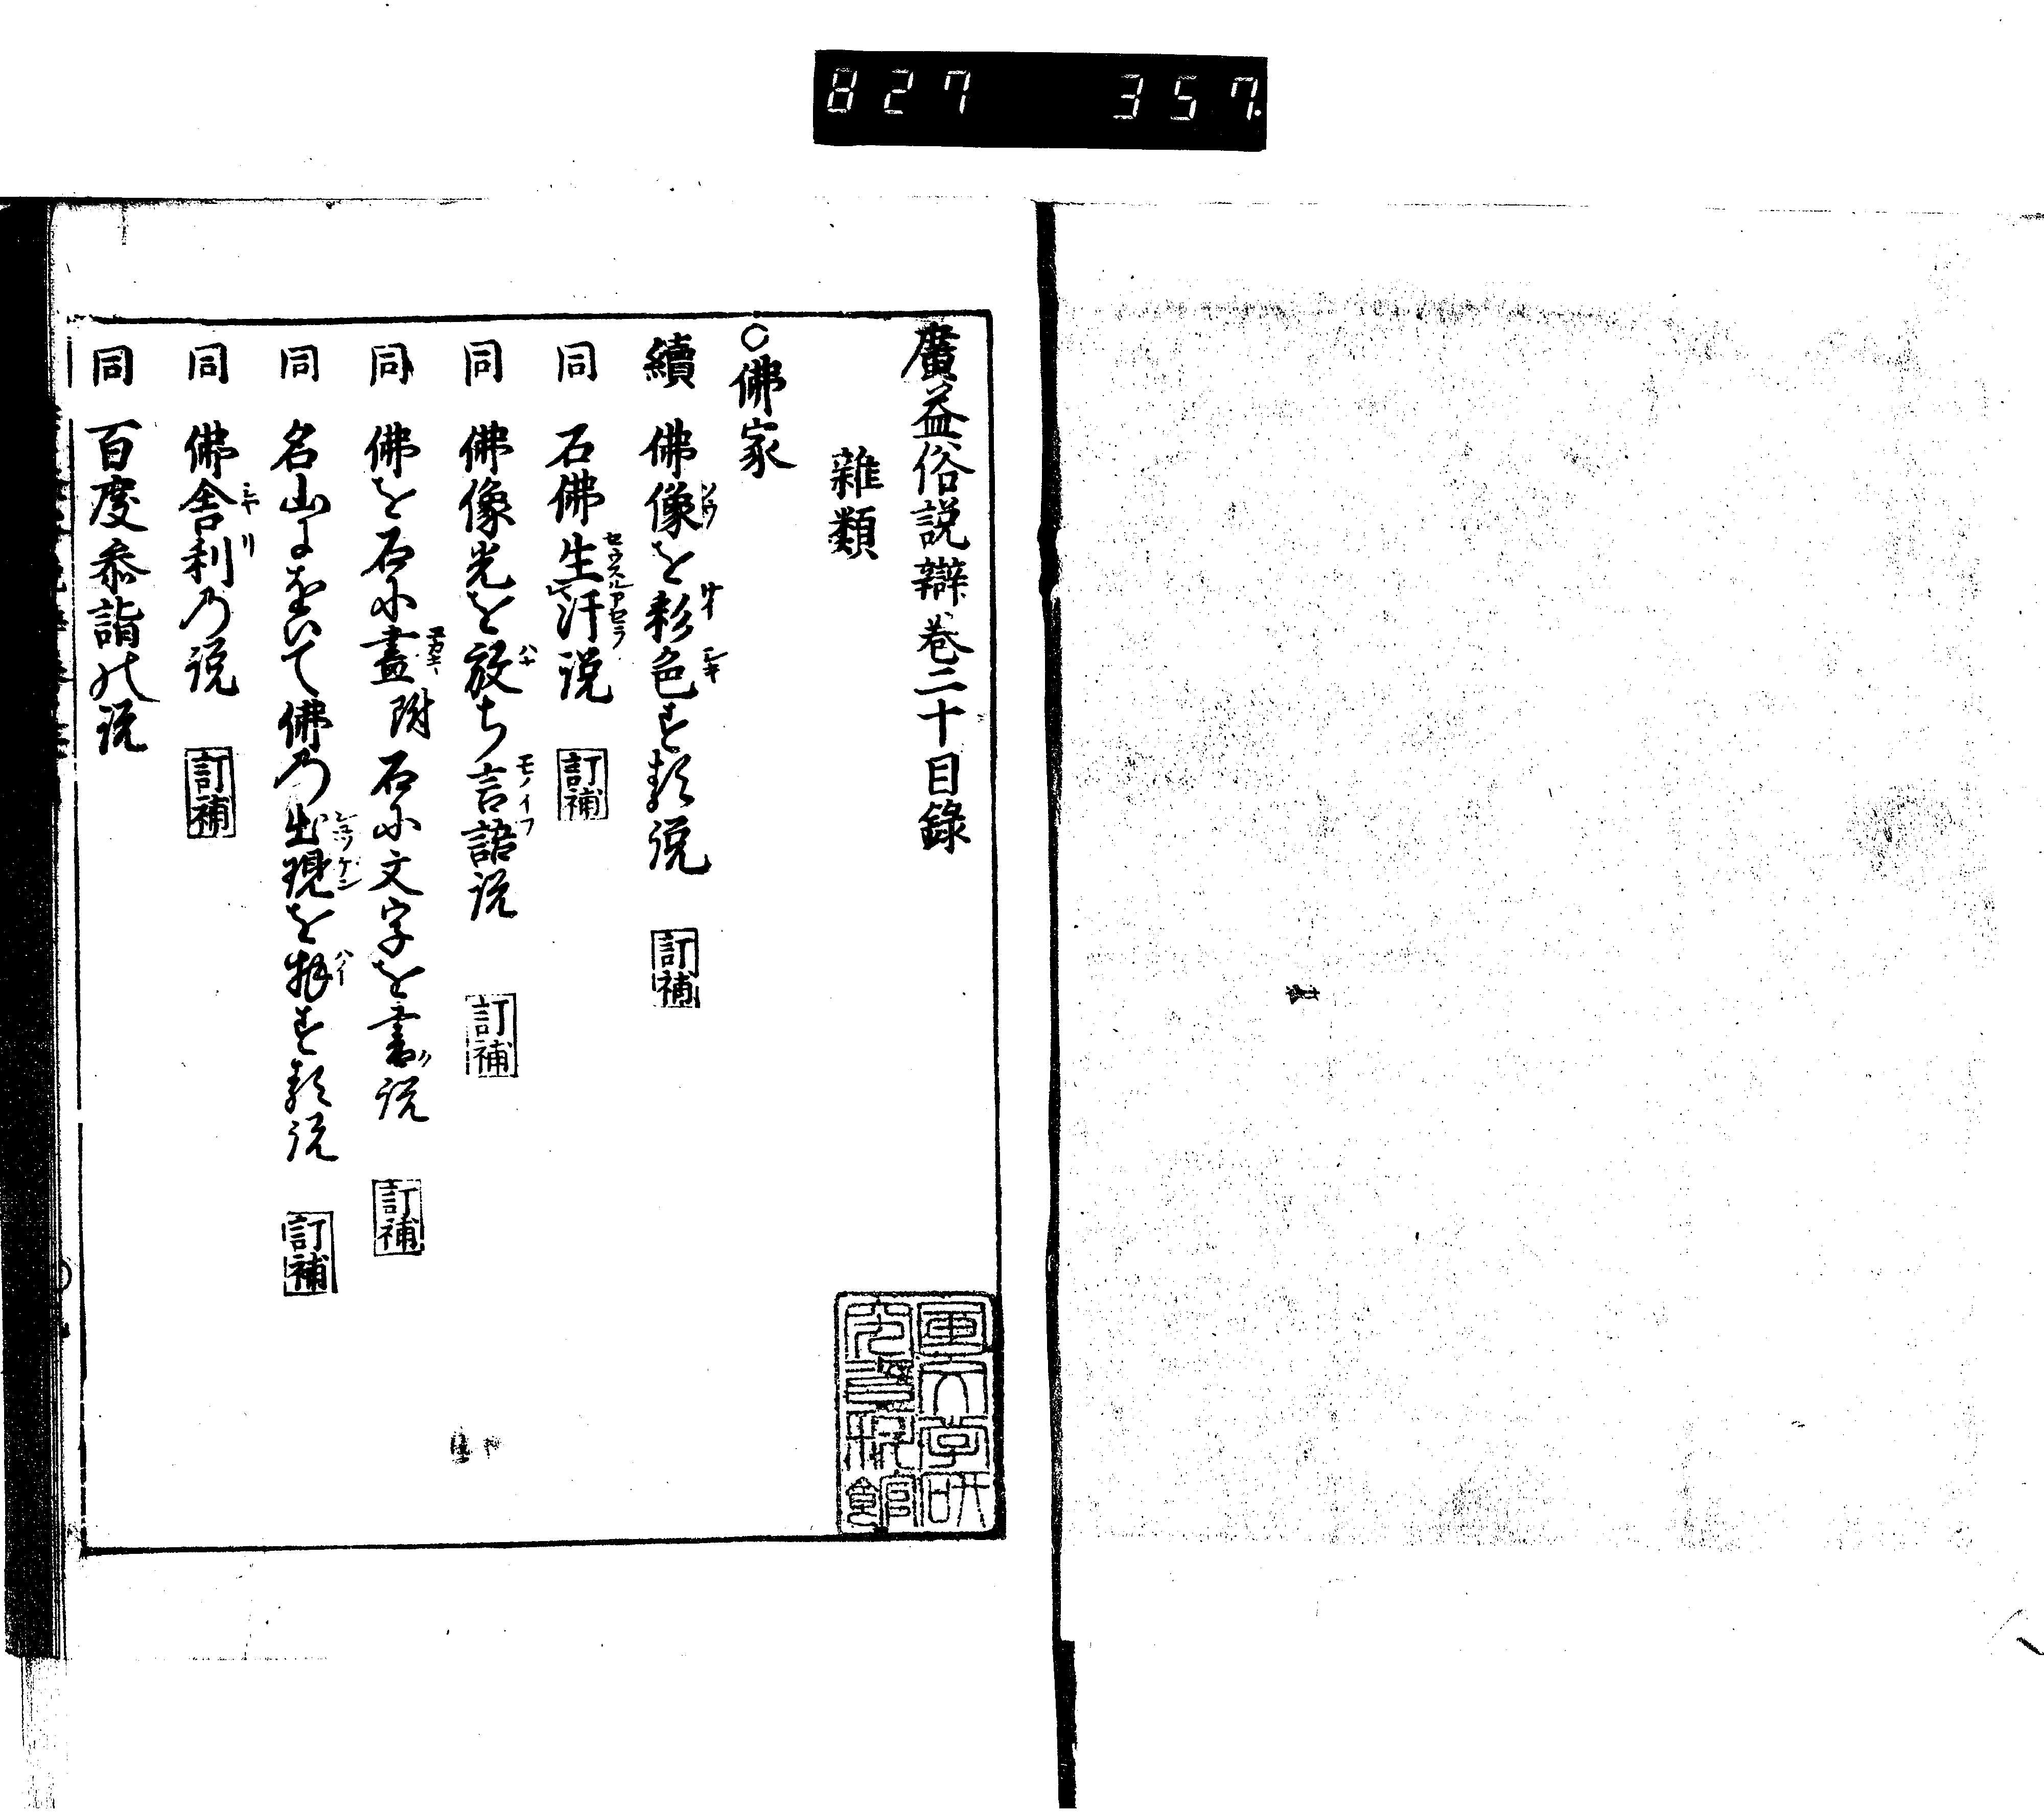 827 357
廣益俗説辯卷二十目錄
雜類
○佛家
續 佛像を彩色する説 訂補
同 石佛生汗説 訂補
同 佛像光を放ち言語説 訂補
同 佛を石に畫附石に文字を書説 訂補
同 名山にをいて佛の出現を拜する説 訂補
同 佛舎利の説 訂補
同 百度参詣の説